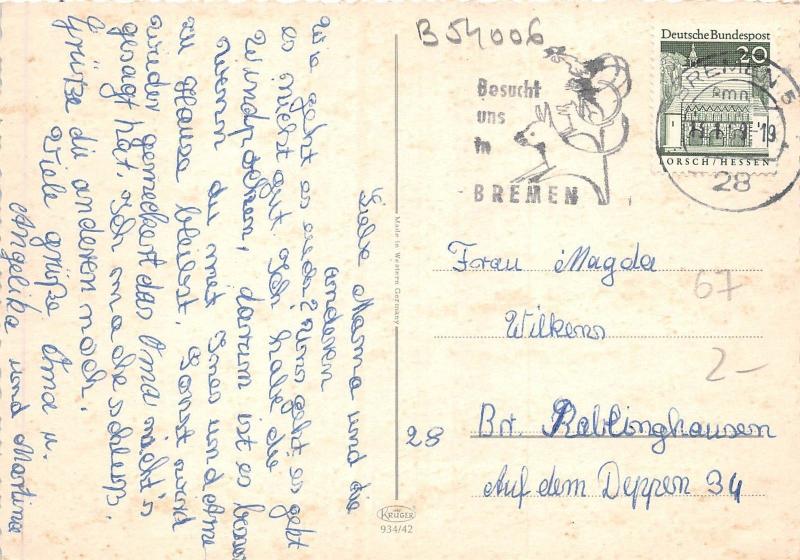 Liebe Mama und die
anderen
Wie geht es euch? Uns geht es geht
es nicht gut. Ich habe die
Windpocken, darum ist es besser
wenn du mit Ines und Arne
zu Hause bleibst. Sonst wird
wieder gemeckert das Oma nicht's
gesagt hat. Ich mache schluß.
Grüße die anderen noch.
Viele grüße Oma u.
Angelika und Martina
Made in Western Germany
KRÜGER
934/42
B54006
Besucht
uns
in
BREMEN
Deutsche Bundespost
20
LORSCH/HESSEN
BREMEN 5
28
Frau Magda
Wilkens
67
2-
28 Br. Rablinghausen
Auf dem Deppen 34